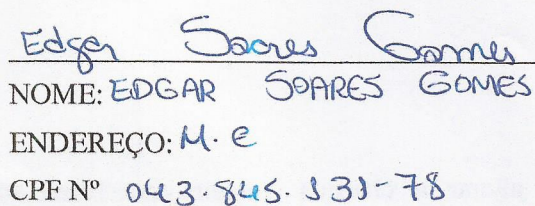 Edgar Soares Gomes
NOME: EDGAR SOARES GOMES
ENDEREÇO: M. e
CPF Nº 043.845.131-78